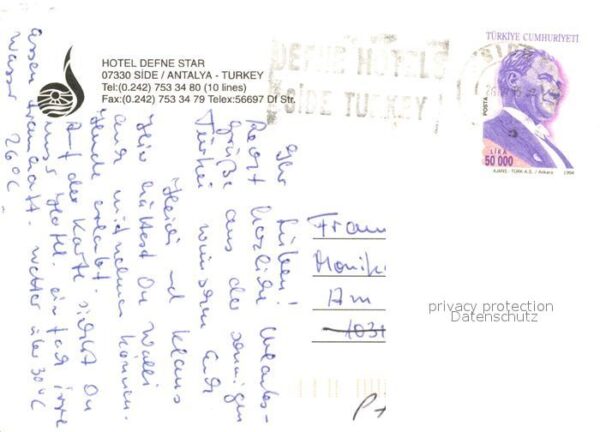 HOTEL DEFNE STAR
07330 SİDE / ANTALYA - TURKEY
Tel:(0.242) 753 34 80 (10 lines)
Fax:(0.242) 753 34 79 Telex:56697 Df Str.
DEFNE HOTELS
SİDE TURKEY
TÜRKİYE CUMHURİYETİ
POSTA
LİRA
50 000
AJANS - TÜRK A.Ş. / Ankara 1994
Ihr Lieben!
herzliche Urlaubs-
grüße aus der sonnigen
Türkei wünschen Euch
Heidi und Klaus
Hier hättest Du Walli
auch mitnehmen können.
Hunde erlaubt.
Auf der Karte siehst Du
uns Hotel. einfach irre
Essen traumhaft. Wetter über 30°C
Wasser 26°C
Frau
Monik
Am
1031
privacy protection
Datenschutz